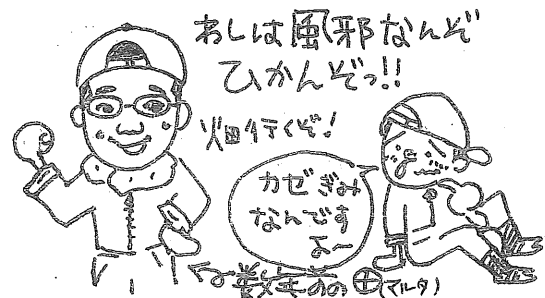 わしは風邪なんぞ
ひかんぞっ!!
畑行くぞ!
カゼぎみ
なんです
よ〜
数年前の㊉(マルタ)